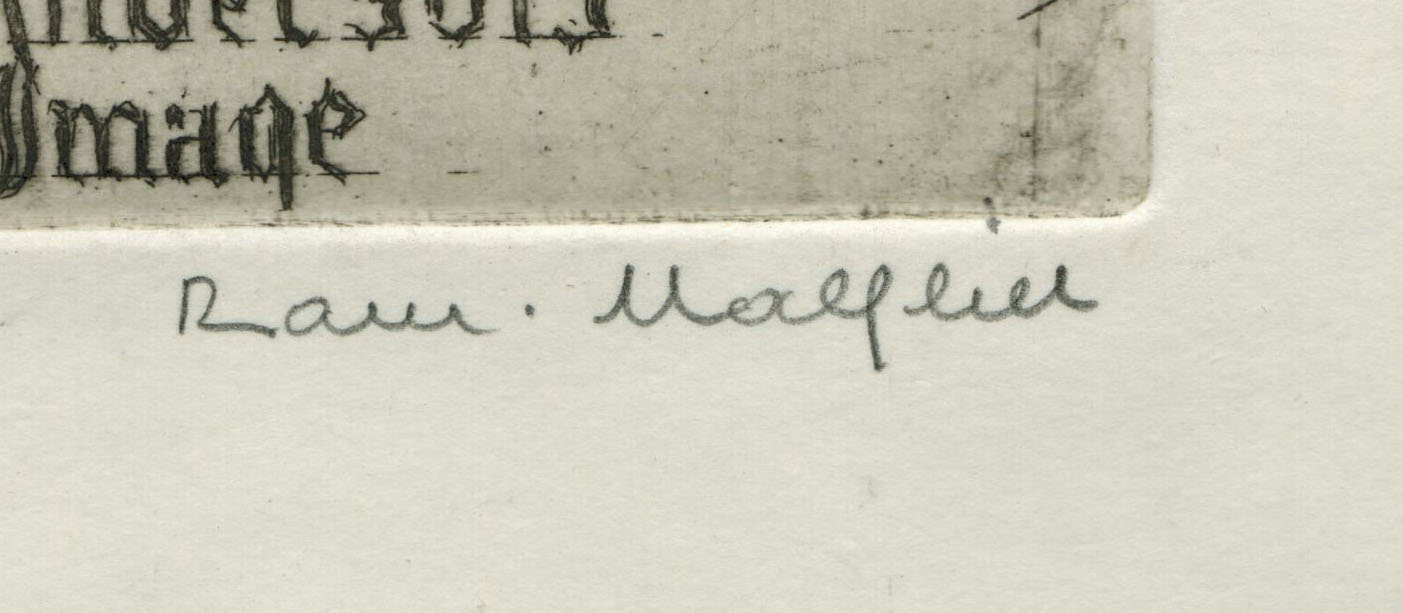 Image
Ram. Malfliet